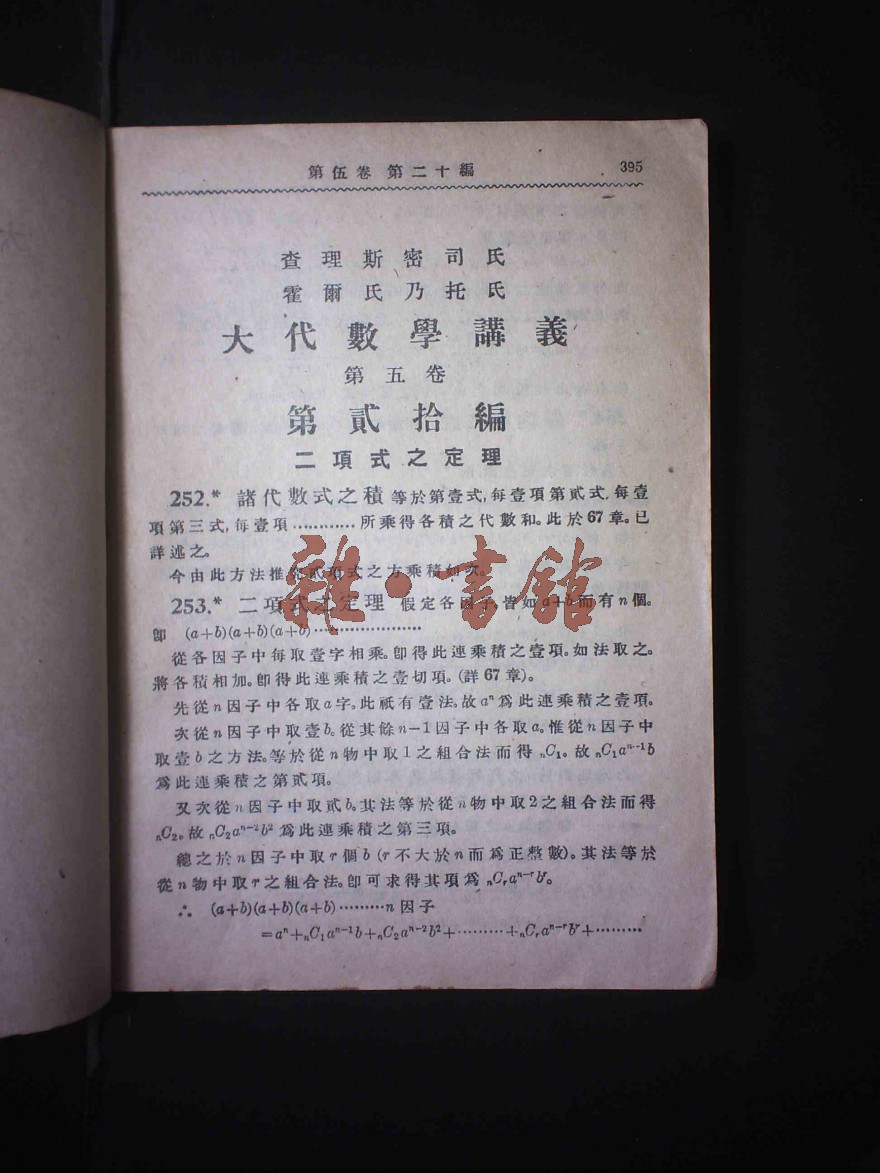 第伍卷 第二十編 395
查理斯密司氏
霍爾氏乃托氏
大代數學講義
第五卷
第貳拾編
二項式之定理
252.* 諸代數式之積 等於第壹式,每壹項第貳式,每壹
項第三式,每壹項…………所乘得各積之代數和。此於67章。已
詳述之。
今由此方法推究貳項式之方乘積如次。
253.* 二項式之定理 假定各因子,皆如a+b而有n個。
卽 (a+b)(a+b)(a+b)…………………
從各因子中每取壹字相乘。卽得此連乘積之壹項。如法取之。
將各積相加。卽得此連乘積之壹切項。(詳67章)。
先從n因子中各取a字。此祇有壹法。故aⁿ爲此連乘積之壹項。
次從n因子中取壹b。從其餘n−1因子中各取a。惟從n因子中
取壹b之方法。等於從n物中取1之組合法而得 ₙC₁。故 ₙC₁aⁿ⁻¹b
爲此連乘積之第貳項。
又次從n因子中取貳b。其法等於從n物中取2之組合法而得
ₙC₂。故 ₙC₂aⁿ⁻²b² 爲此連乘積之第三項。
總之於n因子中取r個b(r不大於n而爲正整數)。其法等於
從n物中取r之組合法。卽可求得其項爲 ₙCᵣaⁿ⁻ʳbʳ。
∴ (a+b)(a+b)(a+b)………n因子
=aⁿ+ₙC₁aⁿ⁻¹b+ₙC₂aⁿ⁻²b²+………+ₙCᵣaⁿ⁻ʳbʳ+………
雜·書館